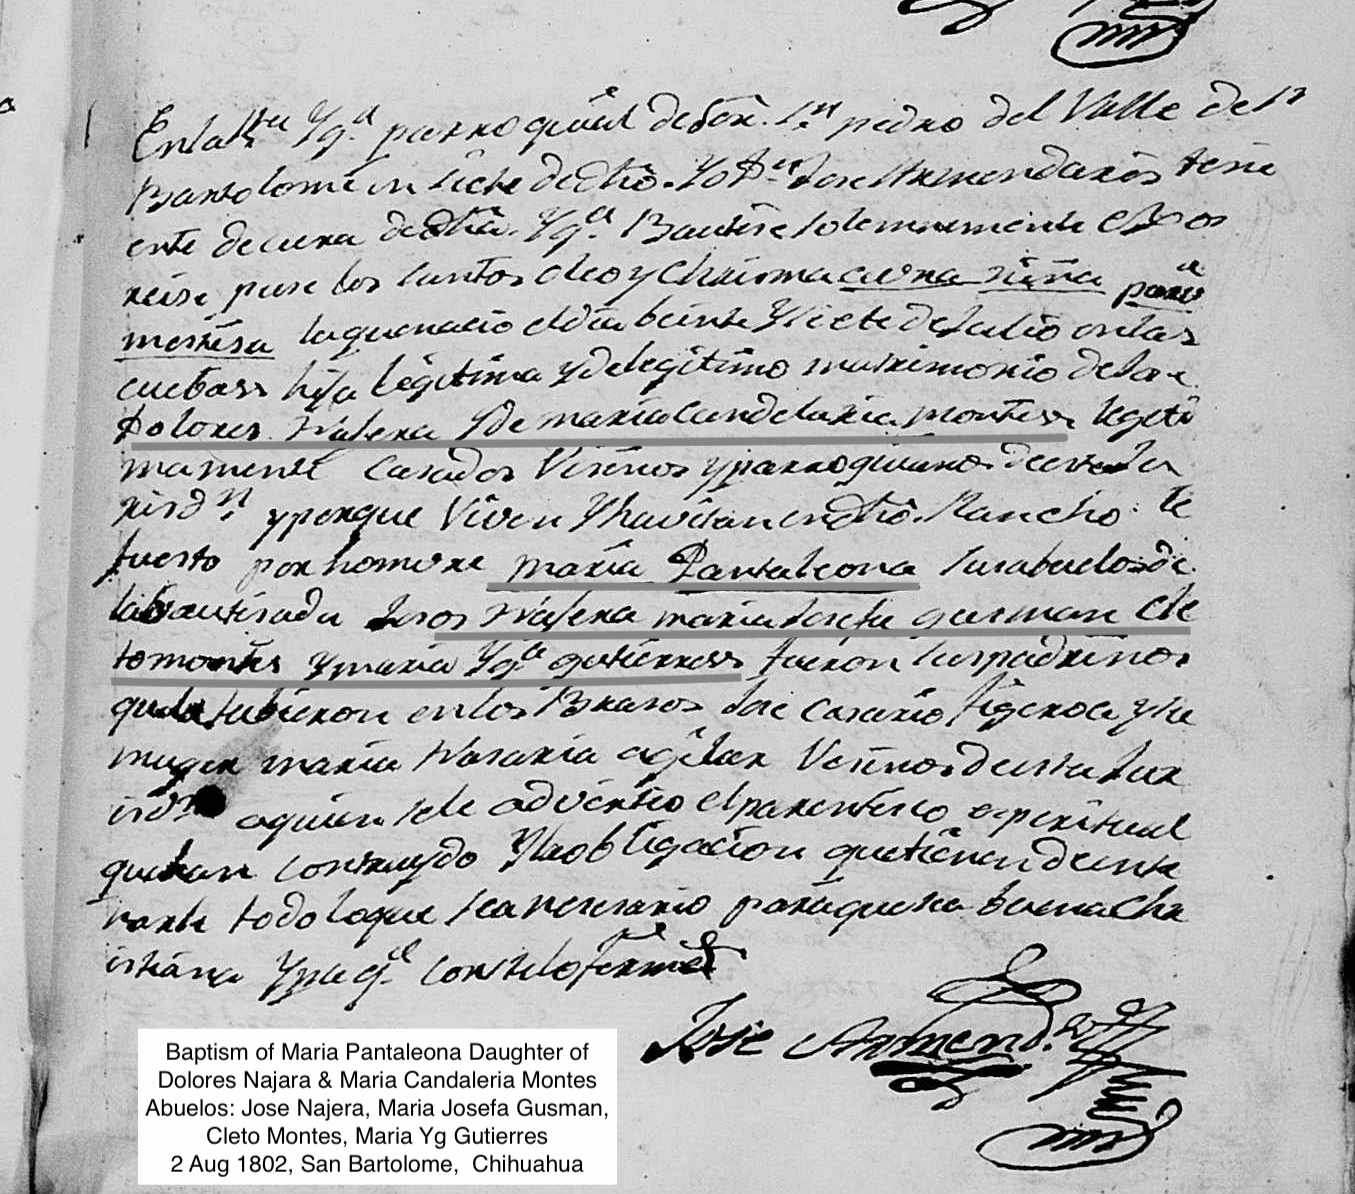 En la Sta Yga parroquial de Sor. Sn pedro del Valle de Sn
Bartolome en siete de dho. Yo Dn Jose Armendaris teni
ente de cura de dha. Yga Bautise solemnemente
puse los santos oleo y Chrisma a una niña
mestisa la que nacio el dia beinte y siete de Julio en las
cuebass hija legitima y de legitimo matrimonio de
Dolores Najera y de maria Candelaria montess legiti
mamente Casados Vesinos y parroquianos de esta Ju
risdn. y porque Viven y havitan en dho. Rancho. le
puesto por nombre maria Pantaleona sus abuelos de
la bautisada Jose Najera maria Josefa gusman Cle
to montes y maria Yga gutierress fueron sus padrinos
que la tubieron en los Brasos Jose Figeroa y su
muger maria Nasaria agilar Vesinos de esta Jur
isdn a quien se le advirtio el parentesco esperitual
que han contraydo y la obligacion que tienen de ense
ñarle todo lo que sea nesesario para que sea buena Chr
istiana y pa qe. conste lo firme
Jose Armend.
Baptism of Maria Pantaleona Daughter of
Dolores Najara & Maria Candaleria Montes
Abuelos: Jose Najera, Maria Josefa Gusman,
Cleto Montes, Maria Yg Gutierres
2 Aug 1802, San Bartolome, Chihuahua